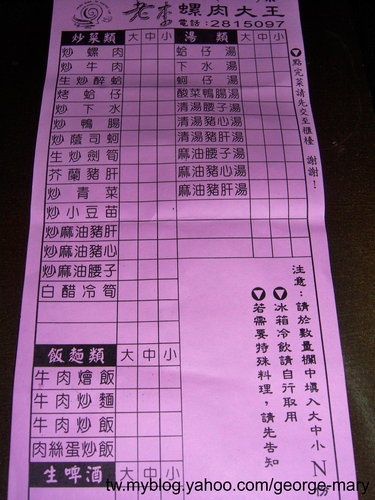 老李螺肉大王
電話:2815097
炒菜類 大 中 小
炒螺肉
炒牛肉
生炒醉蛤
烤蛤仔
炒下水
炒鴨腸
炒蔭司蚵
生炒劍筍
芥蘭豬肝
炒青菜
炒小豆苗
炒麻油豬肝
炒麻油豬心
炒麻油腰子
白醋冷筍
湯類 大 中 小
蛤仔湯
下水湯
蚵仔湯
酸菜鴨腸湯
清湯腰子湯
清湯豬心湯
清湯豬肝湯
麻油腰子湯
麻油豬心湯
麻油豬肝湯
點完菜請先交至櫃檯 謝謝!
飯麵類 大 中 小
牛肉燴飯
牛肉炒麵
牛肉炒飯
肉絲蛋炒飯
生啤酒 大 中 小
注意:請於數量欄中填入大中小N份
冰箱冷飲請自行取用
若需要特殊料理,請先告知
tw.myblog.yahoo.com/george-mary